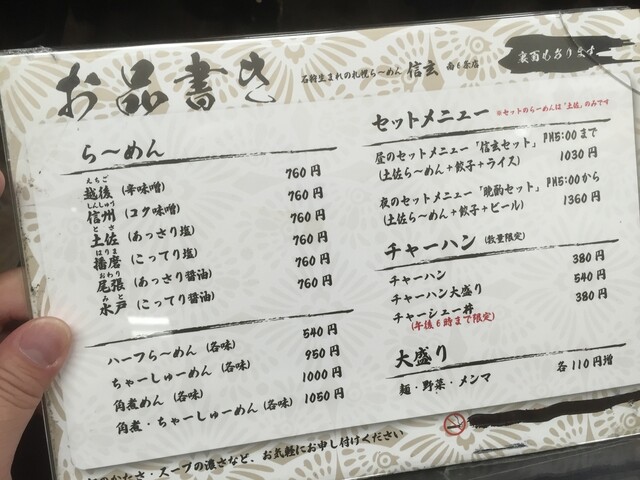 お品書き
石狩生まれの札幌ら〜めん 信玄 南6条店
裏面もあります
ら〜めん
えちご
越後 (辛味噌) 760円
しんしゅう
信州 (コク味噌) 760円
とさ
土佐 (あっさり塩) 760円
はりま
播磨 (こってり塩) 760円
おわり
尾張 (あっさり醤油) 760円
みと
水戸 (こってり醤油) 760円
ハーフら〜めん (各味) 540円
ちゃーしゅーめん (各味) 950円
角煮めん (各味) 1000円
角煮・ちゃーしゅーめん (各味) 1050円
セットメニュー ※セットのら〜めんは「土佐」のみです
昼のセットメニュー「信玄セット」PM5:00まで
(土佐ら〜めん+餃子+ライス) 1030円
夜のセットメニュー「晩酌セット」PM5:00から
(土佐ら〜めん+餃子+ビール) 1360円
チャーハン (数量限定)
チャーハン 380円
チャーハン大盛り 540円
チャーシュー丼 380円
(午後6時まで限定)
大盛り
麺・野菜・メンマ 各110円増
のかたさ・スープの濃さなど、お気軽にお申し付けください